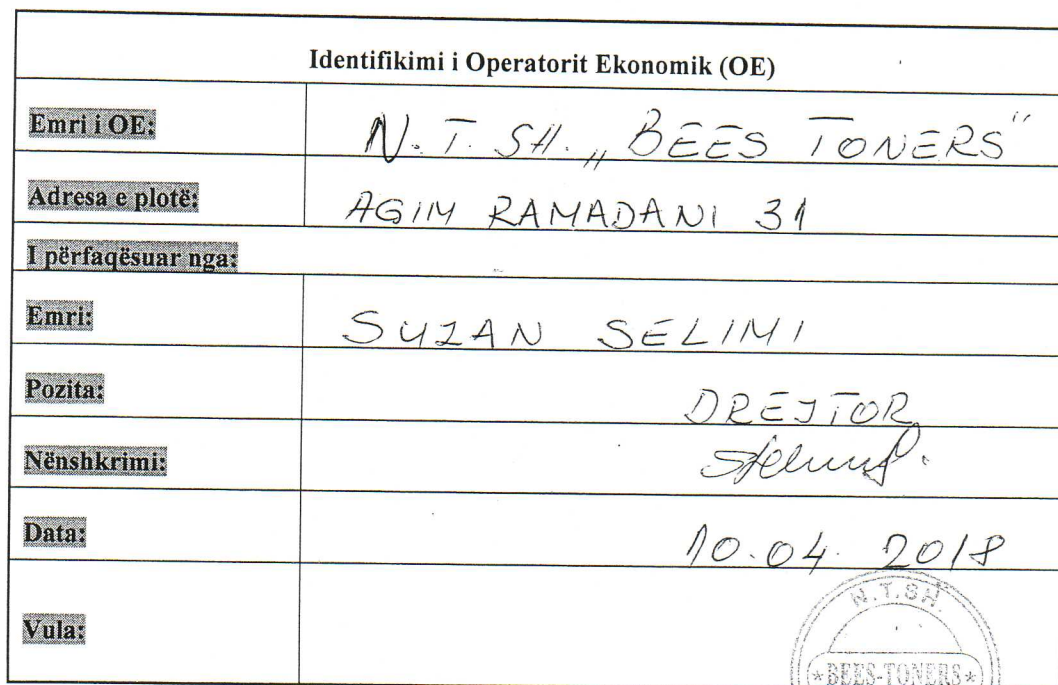 Identifikimi i Operatorit Ekonomik (OE)
Emri i OE: N.T.SH. „BEES TONERS"
Adresa e plotë: AGIM RAMADANI 31
I përfaqësuar nga:
Emri: SUZAN SELIMI
Pozita: DREJTOR
Nënshkrimi:
Data: 10.04.2018
Vula:
N.T.SH.
*BEES-TONERS*